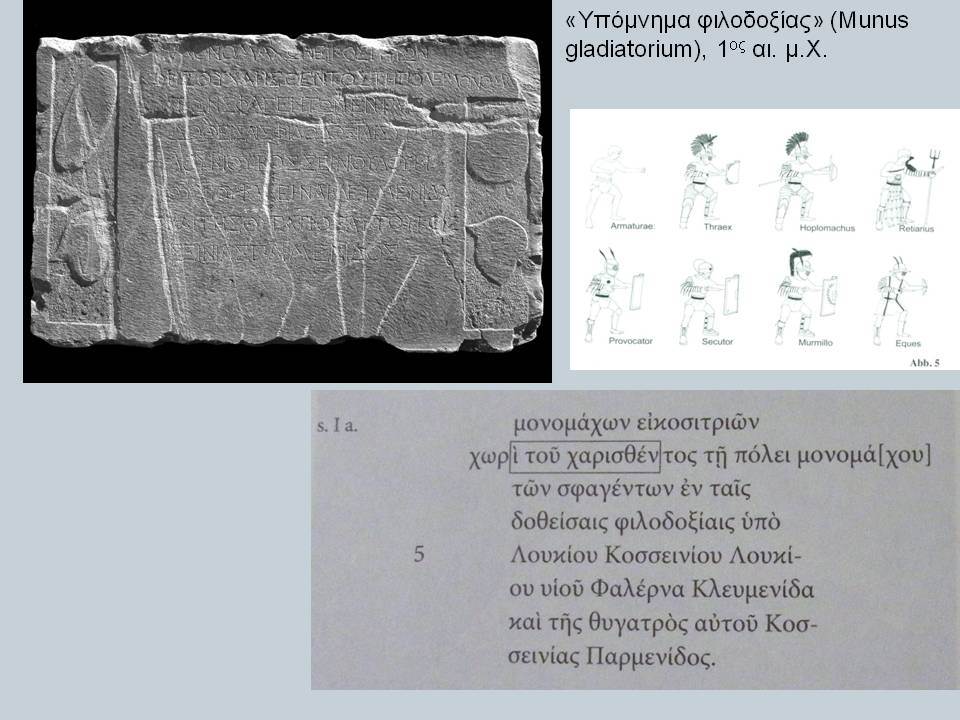 «Υπόμνημα φιλοδοξίας» (Munus
gladiatorium), 1ος αι. μ.Χ.
Armaturae:
Thraex
Hoplomachus
Retiarius
Provocator
Secutor
Murmillo
Eques
Abb. 5
s. I a.
μονομάχων εἰκοσιτριῶν
χωρὶ τοῦ χαρισθέντος τῇ πόλει μονομά[χου]
τῶν σφαγέντων ἐν ταῖς
δοθείσαις φιλοδοξίαις ὑπὸ
5 Λουκίου Κοσσεινίου Λουκί-
ου υἱοῦ Φαλέρνα Κλευμενίδα
καὶ τῆς θυγατρὸς αὐτοῦ Κοσ-
σεινίας Παρμενίδος.